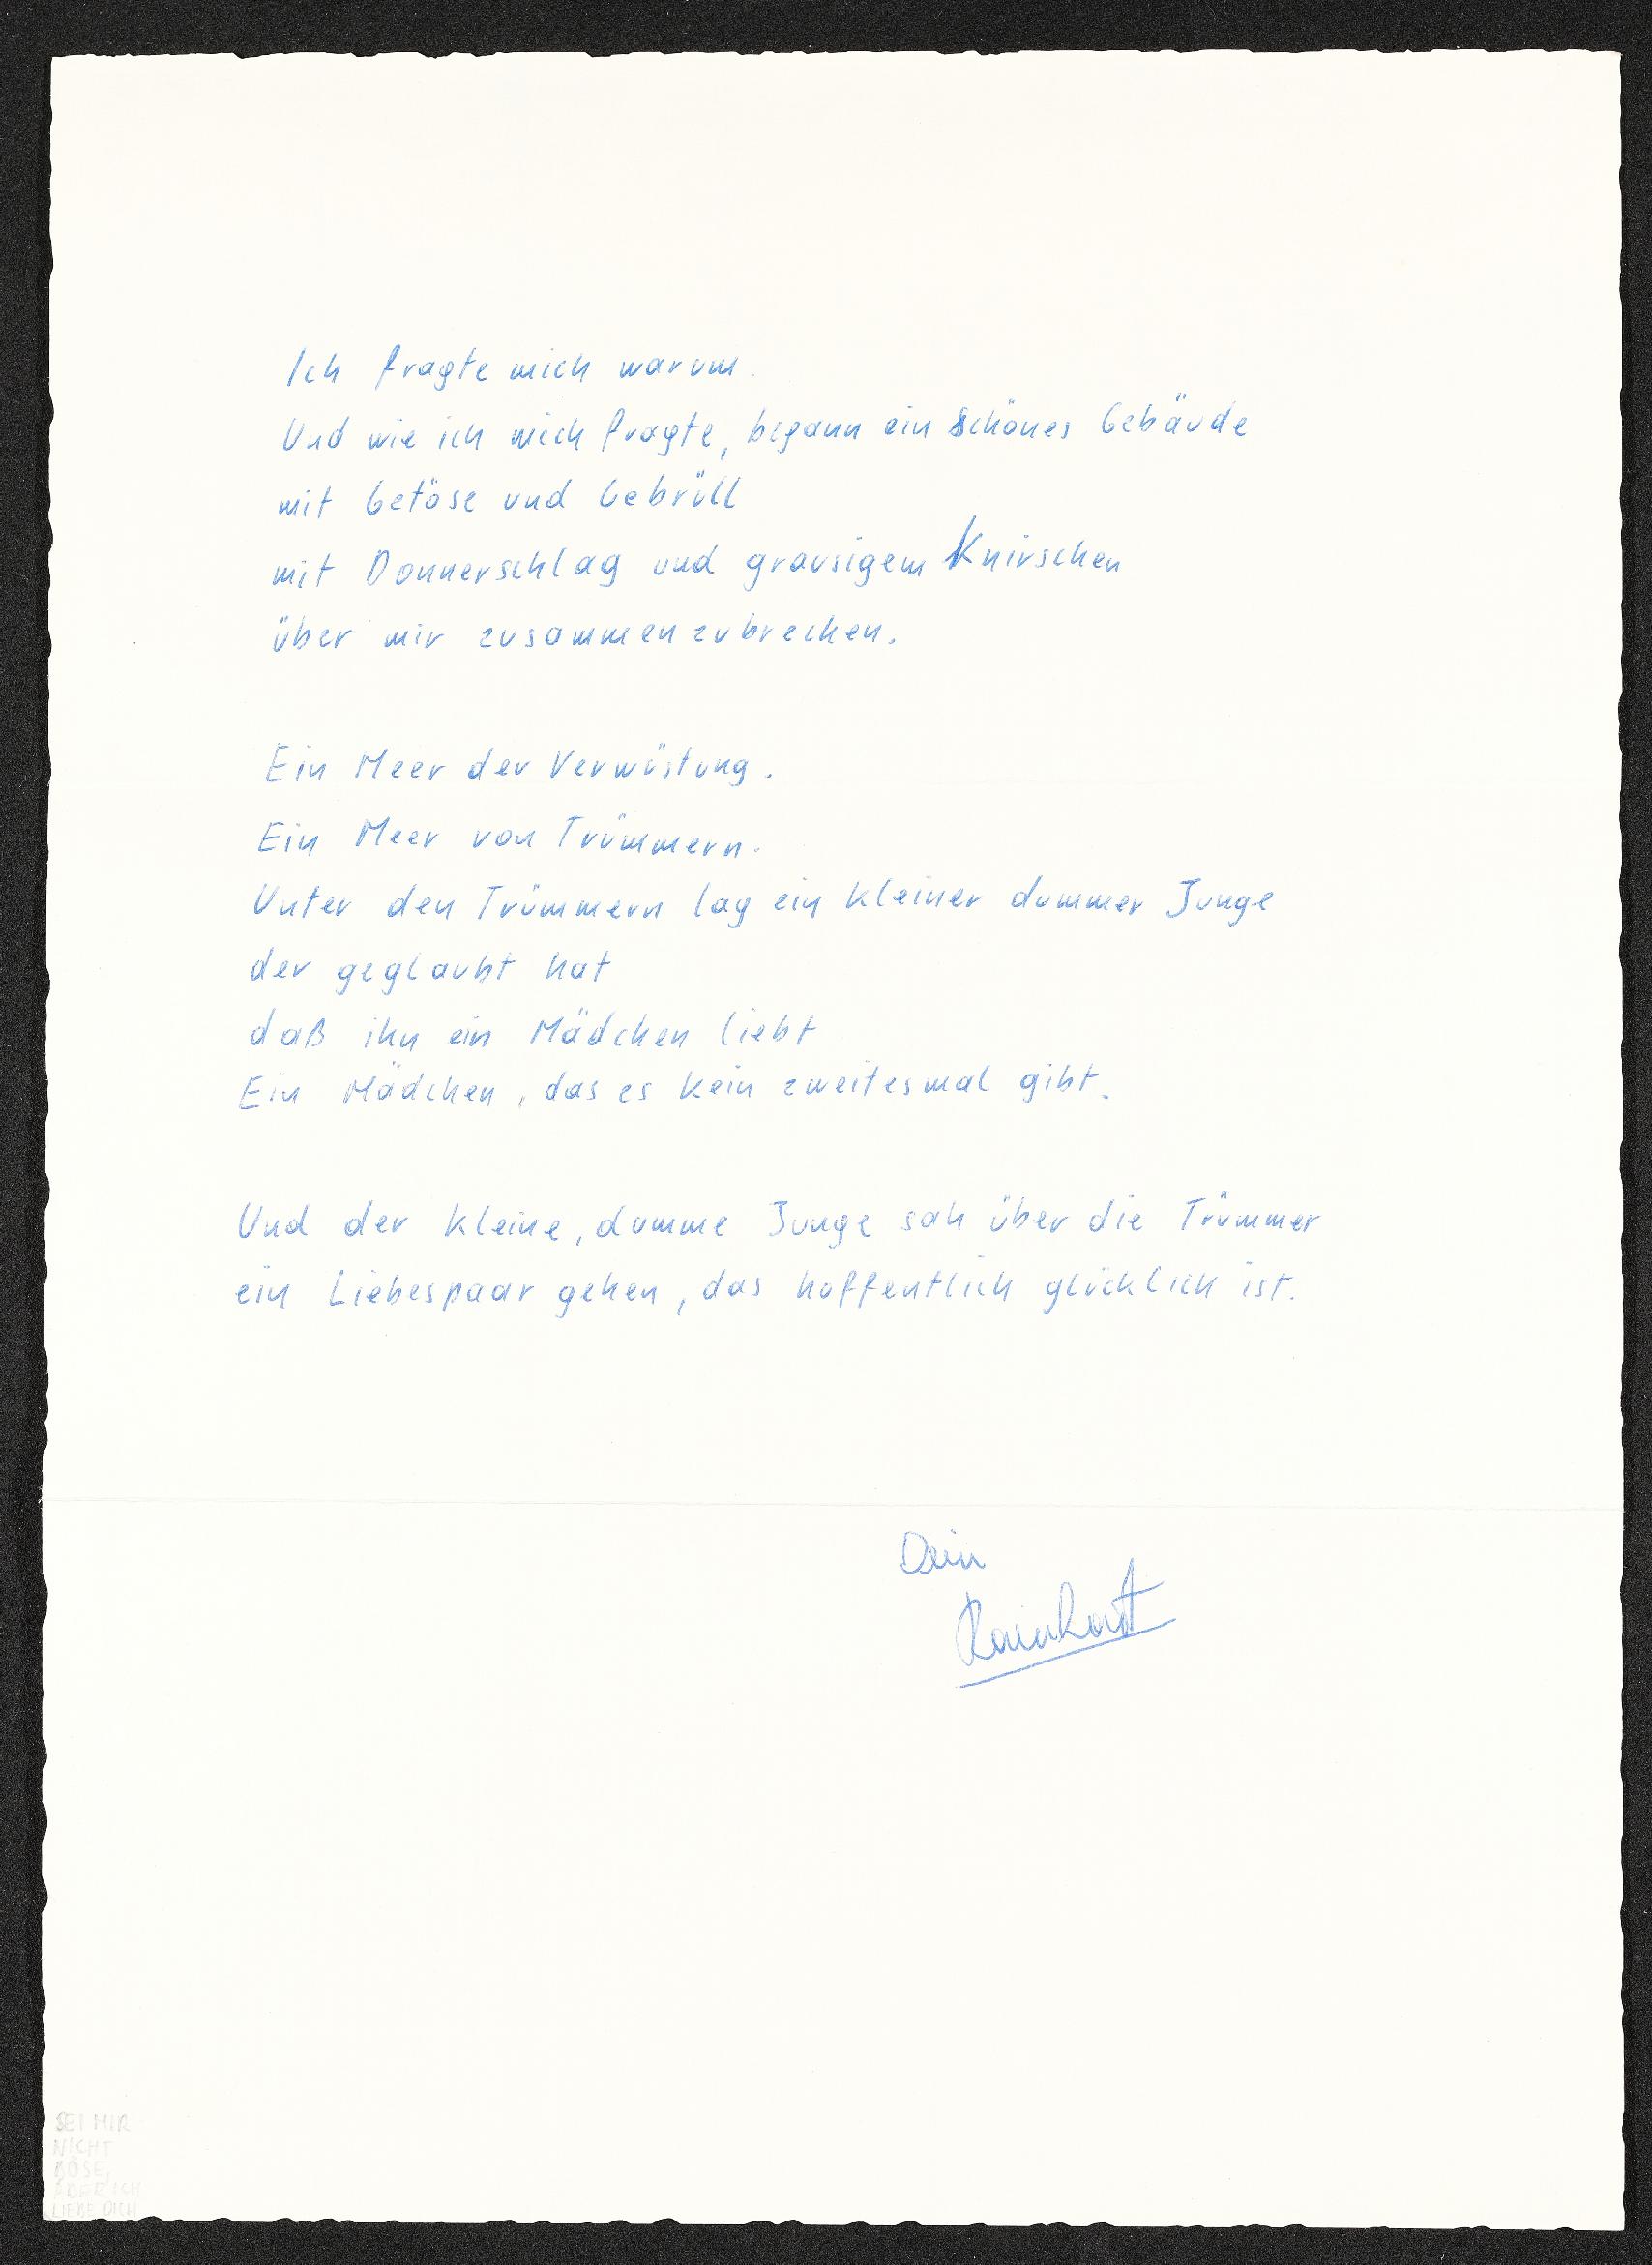 Ich fragte mich warum.
Und wie ich mich fragte, begann ein schönes Gebäude
mit Getöse und Gebrüll
mit Donnerschlag und grausigem Knirschen
über mir zusammenzubrechen.
Ein Meer der Verwüstung.
Ein Meer von Trümmern.
Unter den Trümmern lag ein kleiner dummer Junge
der geglaubt hat
daß ihn ein Mädchen liebt
Ein Mädchen, das es kein zweitesmal gibt.
Und der kleine, dumme Junge sah über die Trümmer
ein Liebespaar gehen, das hoffentlich glücklich ist.
Dein
Rainhart
SEI MIR
NICHT
BÖSE,
ABER ICH
LIEBE DICH